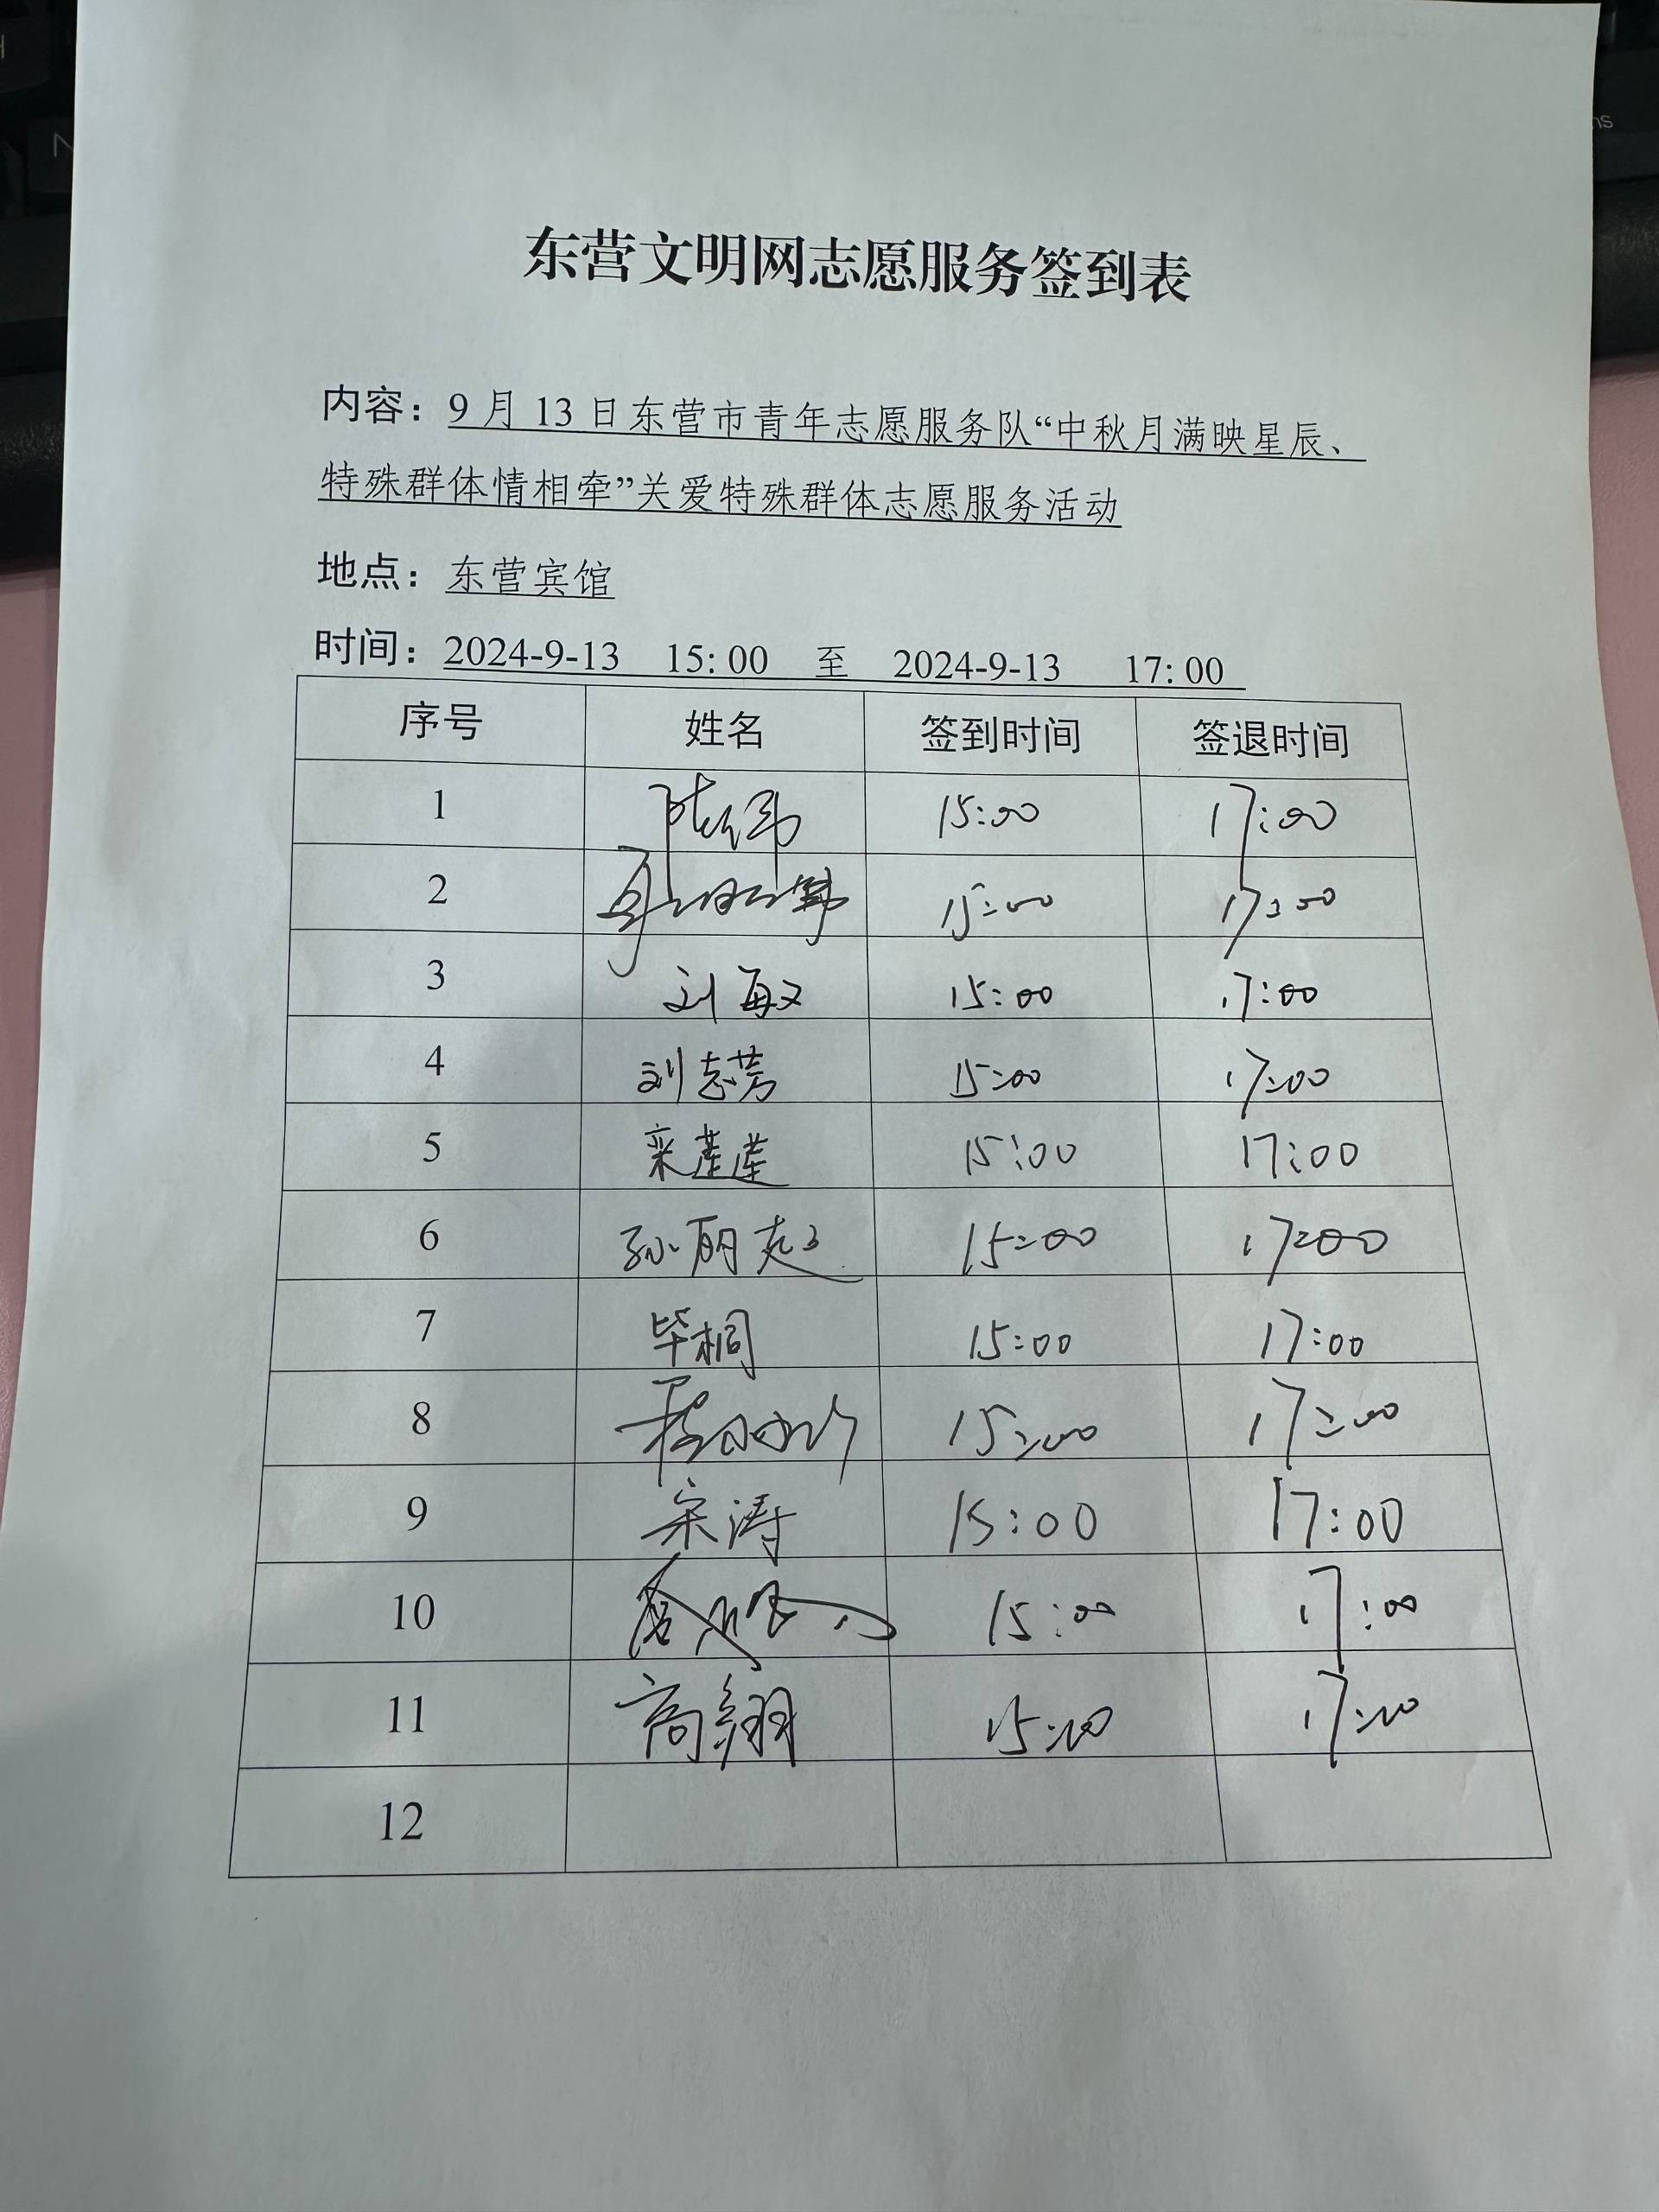 东营文明网志愿服务签到表
内容：9月13日东营市青年志愿服务队“中秋月满映星辰、
特殊群体情相牵”关爱特殊群体志愿服务活动
地点：东营宾馆
时间：2024-9-13 15:00 至 2024-9-13 17:00
序号 姓名 签到时间 签退时间
1 陈伟 15:00 17:00
2 15:00 17:00
3 刘敏 15:00 17:00
4 刘志芳 15:00 17:00
5 栾莲莲 15:00 17:00
6 孙丽 15:00 17:00
7 毕桐 15:00 17:00
8 程 15:00 17:00
9 宋涛 15:00 17:00
10 15:00 17:00
11 高翔 15:00 17:00
12